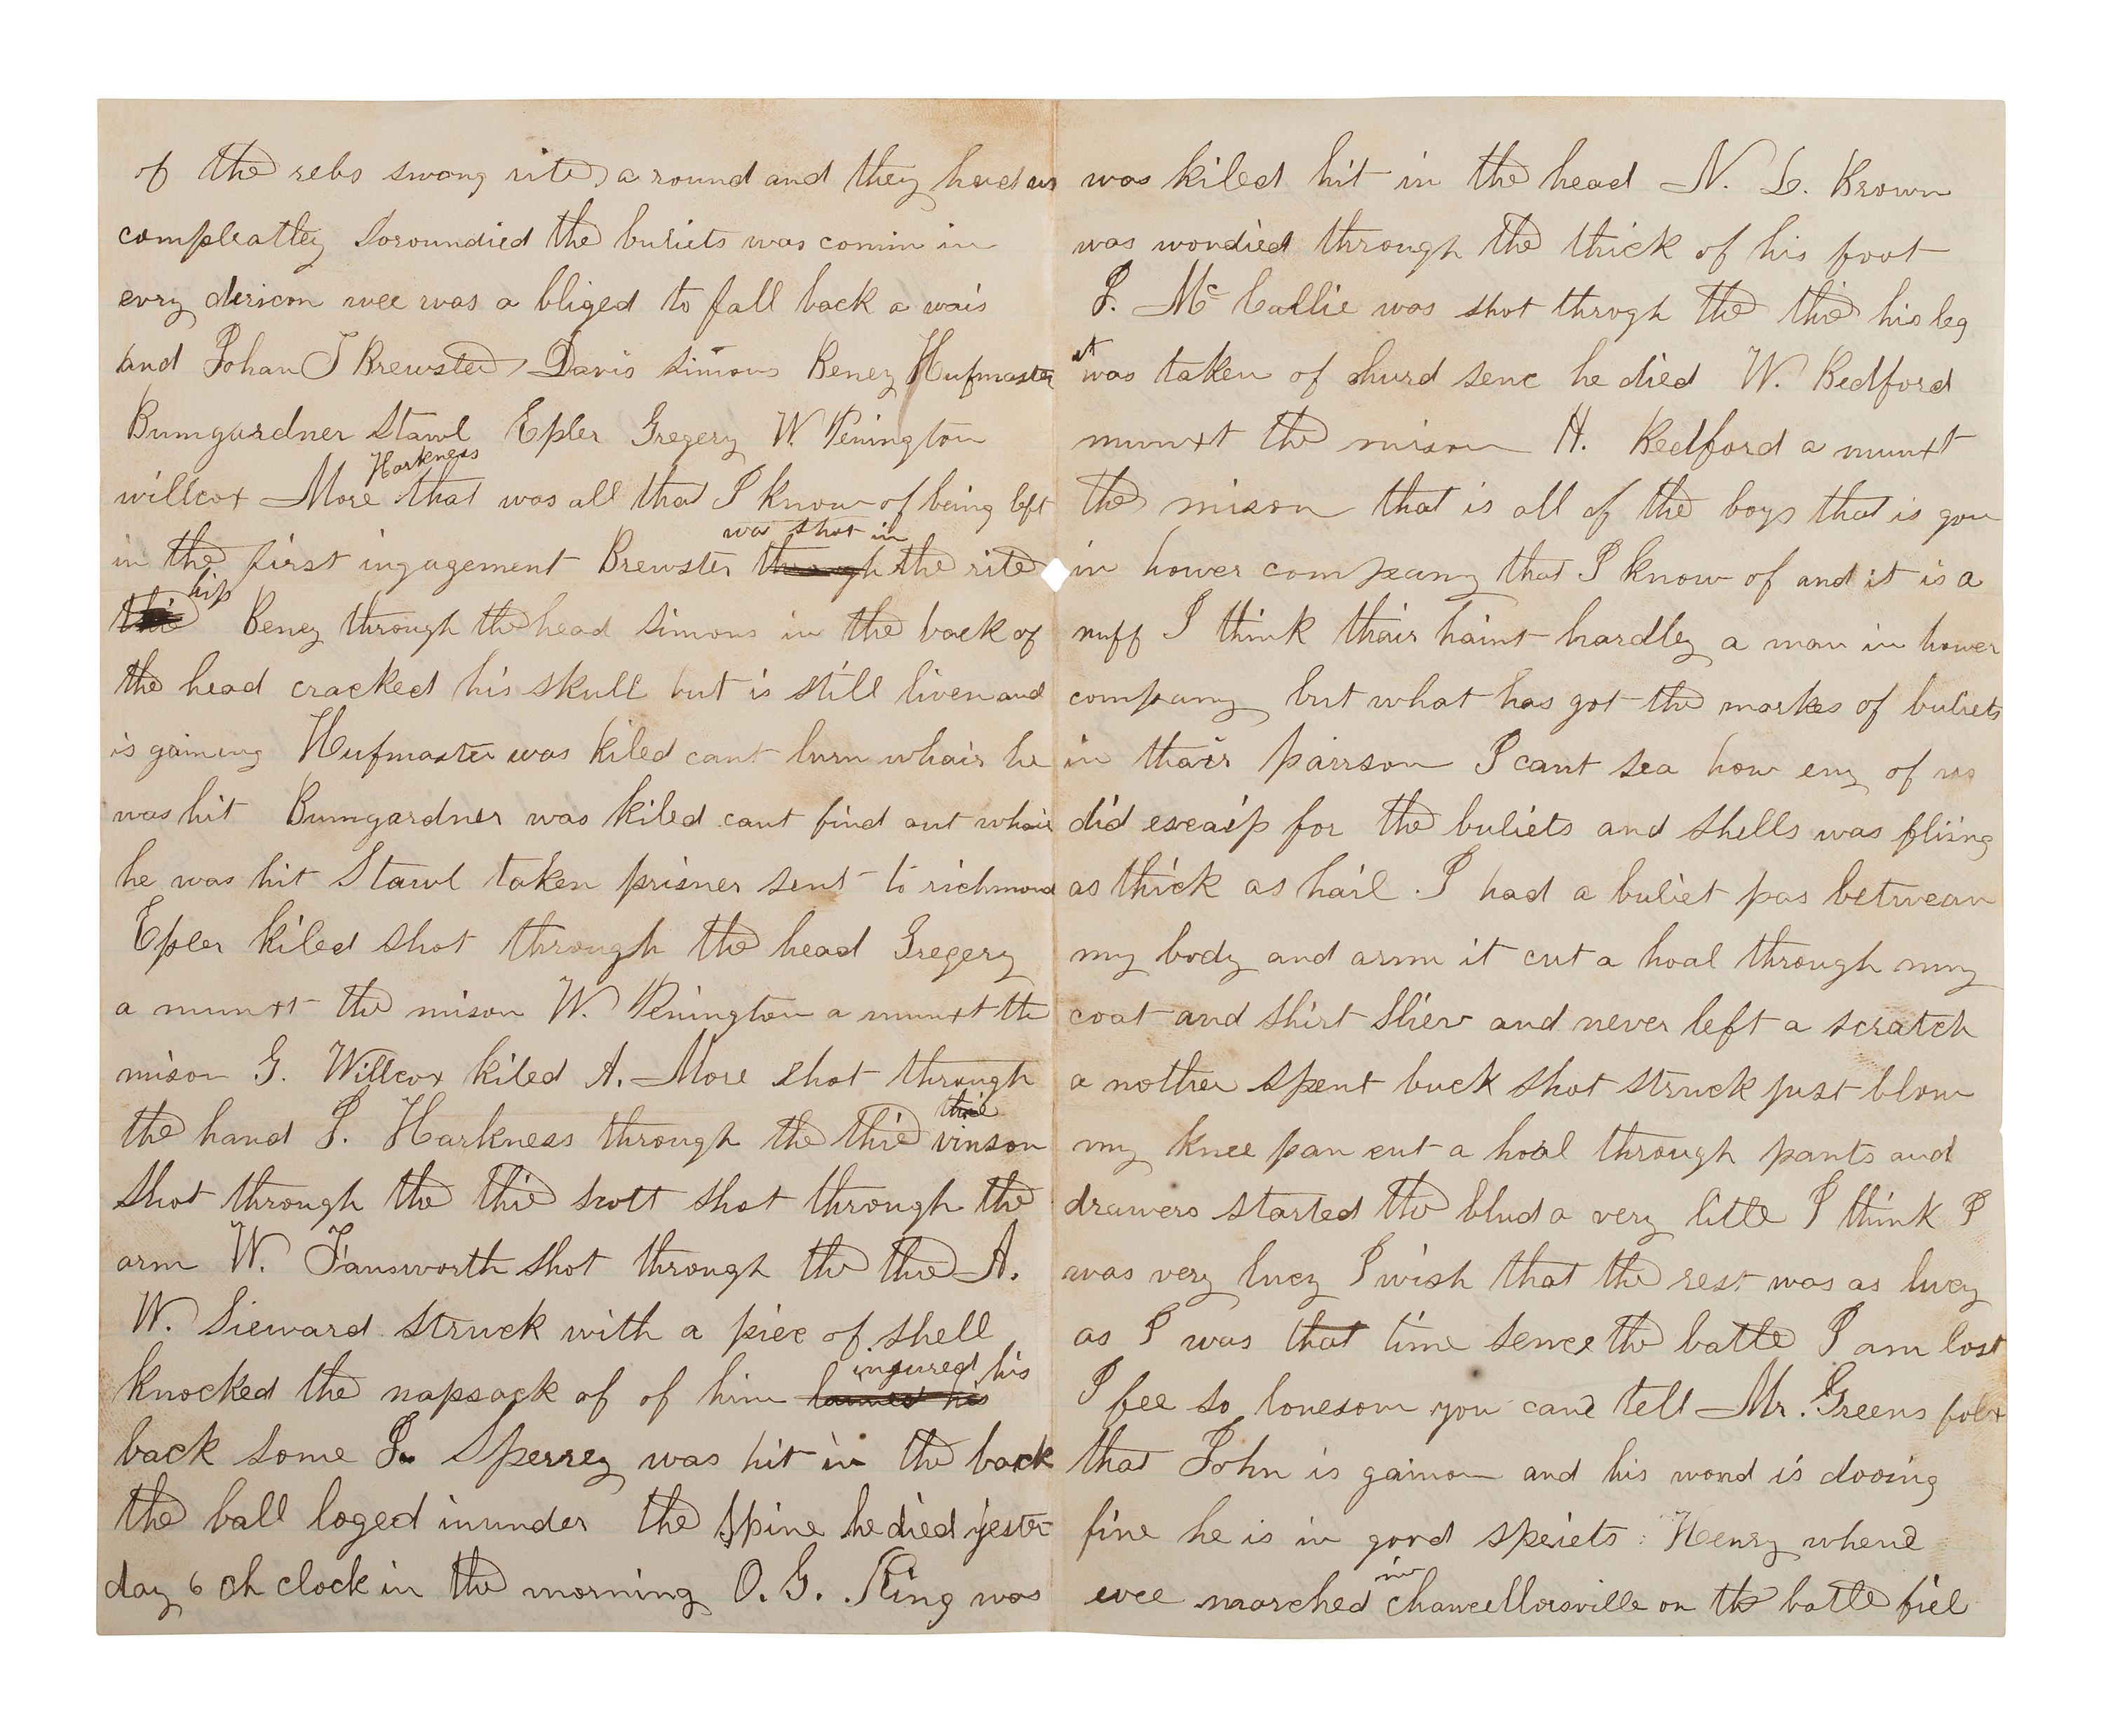 of the rebs swong rite a round and they had us
compleatley soroundied the buliets was comin in
evry diricon wee was a bliged to fall back a wais
and Johan J Brewster Davis simons Beney Hufmaster
Bumgardner Stawl Epler Gregery W. Penington
Harkness
willcox More that was all that I know of being left
was shot in
in the first ingagement Brewster through the rite
hip
thie Beney through the head simons in the back of
the head cracked his skull but is still liven and
is gaining Hufmaster was kiled cant lurn whair he
was hit Bumgardner was kiled cant find out whair
he was hit Stawl taken prisner sent to richmond
Epler kiled shot through the head Gregery
a munxt the mison W. Penington a munxt the
mison G. Willcox kiled A. More shot through
the hand J. Harkness through the thie vinson
shot through the thie scott shot through the
arm W. Fansworth shot through the thie A.
W. Sieward struck with a piec of shell
injured his
knocked the napsack of of him his
back some J. Sperrey was hit in the back
the ball loged inunder the spine he died yester
day 6 oh clock in the morning O. G. King was
was kiled hit in the head N. L. Brown
was wondied through the thick of his foot
J. Mc Callie was shot throgh the thie his leg
it
was taken of hurd senc he died W. Bedford
munxt the mison H. Bedford a munxt
the mison that is all of the boys that is gon
in hower company that I know of and it is a
nuff I think thair haint hardley a man in hower
company but what has got the markes of buliets
in thair pairson I cant sea how eny of us
did escaip for the buliets and shells was fliing
as thick as hail . I had a buliet pas betwean
my body and arm it cut a hoal through my
coat and shirt sliev and never left a scratch
a nother spent buck shot struck just blow
my knee pan cut a hoal through pants and
drawers started the blud a very little I think I
was very lucy I wish that the rest was as lucy
as I was that time sence the batle I am lost
I fee so lonesom you cand tell Mr. Greens folx
that John is gainon and his wond is dooing
fine he is in good speiets : Henry whend
in
wee marched chancellorsville on the batle fiel